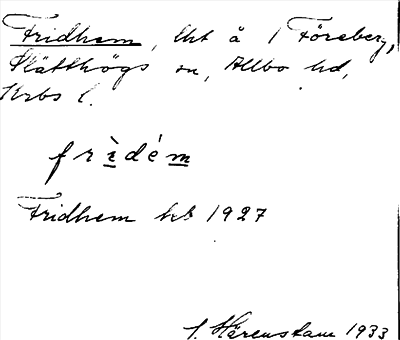 Fridhem, lht å 1 Föreberg,
Slätthögs sn, Allbo hd,
Krbs l.
frìdém
Fridhem kb 1927
S. Härenstam 1933